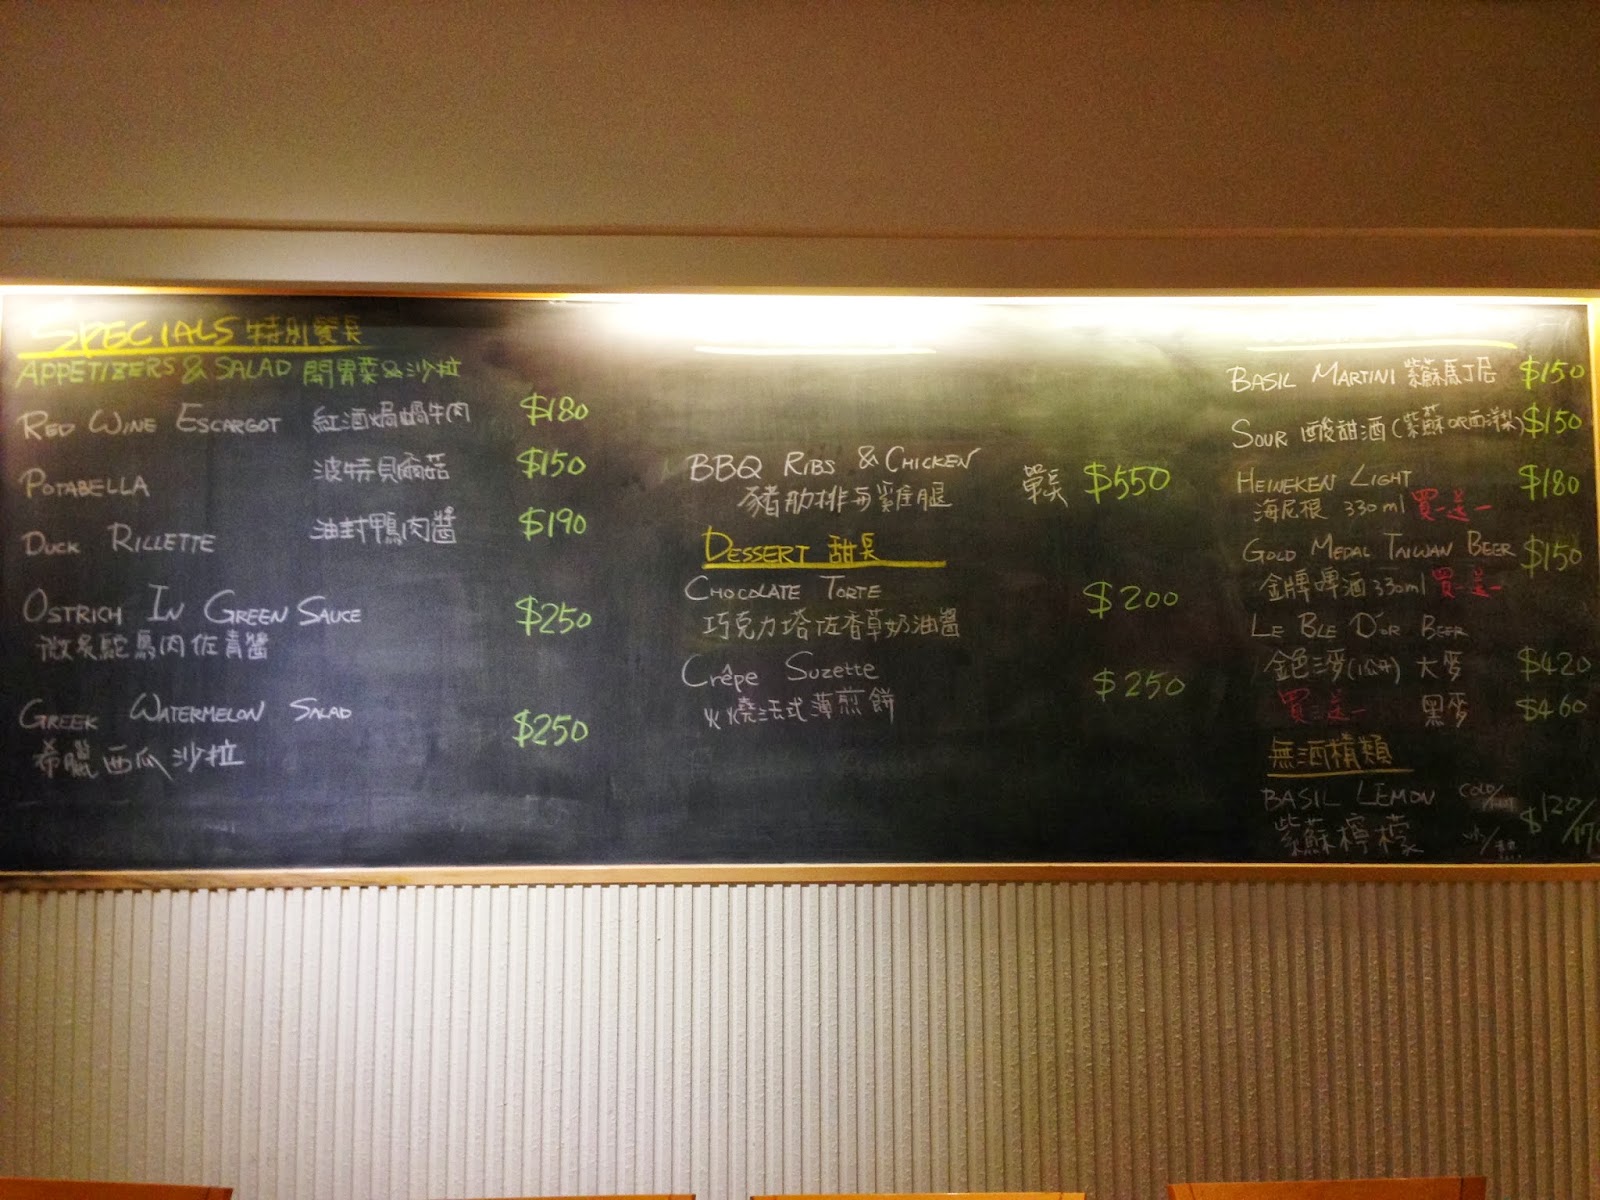 SPECIALS 特別餐点
APPETIZERS & SALAD 開胃菜&沙拉
RED WINE ESCARGOT 紅酒焗蝸牛肉 $180
POTABELLA 波特貝爾菇 $150
DUCK RILLETTE 油封鴨肉醬 $190
OSTRICH IN GREEN SAUCE $250
微炙鴕鳥肉佐青醬
GREEK WATERMELON SALAD $250
希臘西瓜沙拉
BBQ RIBS & CHICKEN $550
豬肋排與雞腿 單点
DESSERT 甜点
CHOCOLATE TORTE $200
巧克力塔佐香草奶油醬
Crêpe Suzette $250
火燒法式薄煎餅
BASIL MARTINI 紫蘇馬丁尼 $150
SOUR 酸甜酒(紫蘇OR西洋梨) $150
HEINEKEN LIGHT $180
海尼根 330ml 買一送一
GOLD MEDAL TAIWAN BEER $150
金牌啤酒 330ml 買一送一
LE BLE D'OR BEER
金色三麥(1公升) 大麥 $420
買三送一 黑麥 $460
無酒精類
BASIL LEMON COLD/HOT $120/170
紫蘇檸檬